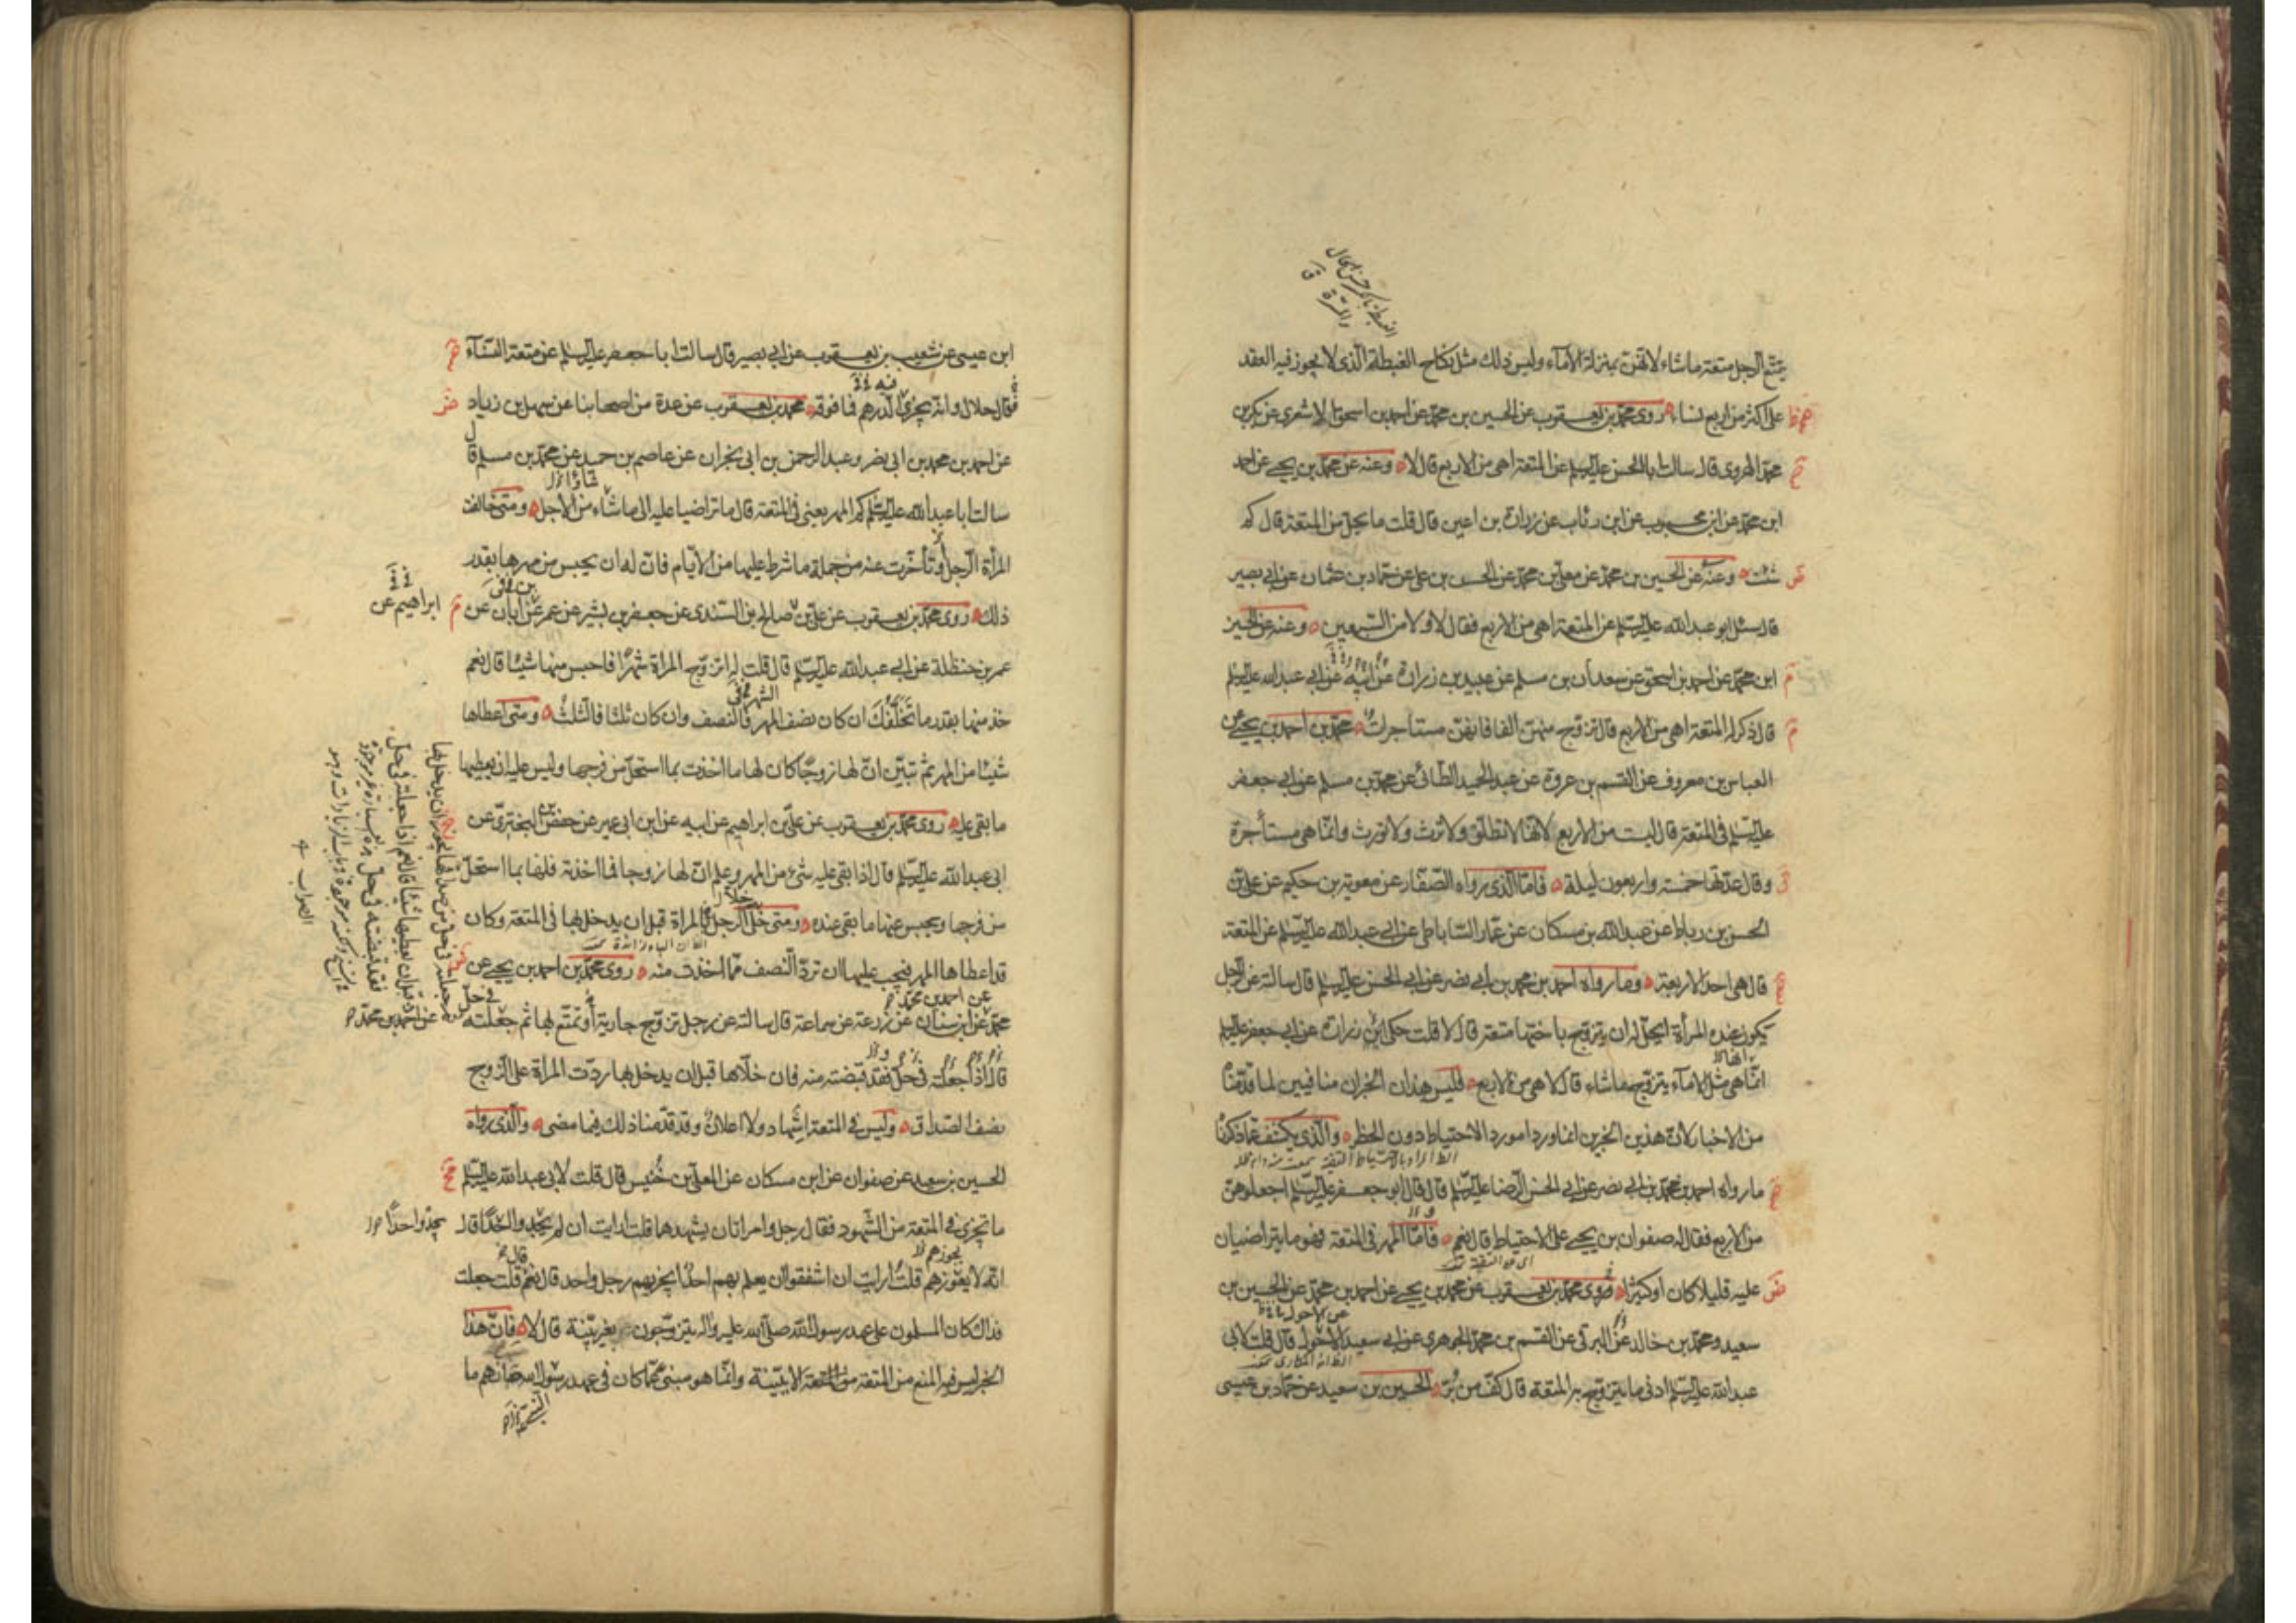 يتمتع الرجل متعة ما شاء لانهن بمنزلة الاماء وليس ذلك مثل نكاح الغبطة الذي لا يجوز فيه العقد
على اكثر من اربع نساء روى محمد بن يعقوب عن الحسين بن محمد عن احمد بن اسحق الاشعري عن بكر بن
محمد الازدي قال سالت ابا الحسن عليه السلم عن المتعة اهي من الاربع قال لا وعنه عن محمد بن يحيى عن احمد
ابن محمد عن ابن محبوب عن ابن رئاب عن زرارة بن اعين قال قلت ما يحل من المتعة قال كم
شئت وعنه عن الحسين بن محمد عن معلى بن محمد عن الحسن بن علي عن حماد بن عثمان عن ابي بصير
قال سئل ابو عبد الله عليه السلم عن المتعة اهي من الاربع فقال لا ولا من السبعين وعنه عن الحسين
ابن محمد عن احمد بن اسحق عن سعدان بن مسلم عن عبيد بن زرارة عن ابيه عن ابي عبد الله عليه السلم
قال ذكر له المتعة اهي من الاربع قال تزوج منهن الفا فانهن مستاجرات محمد بن احمد بن يحيى عن
العباس بن معروف عن القسم بن عروة عن عبد الحميد الطائي عن محمد بن مسلم عن ابي جعفر
عليه السلم في المتعة قال ليست من الاربع لانها لا تطلق ولا ترث ولا تورث وانما هي مستأجرة
وقال عدتها خمسة واربعون ليلة فاما الذي رواه الصفار عن معوية بن حكيم عن علي بن
الحسن بن رباط عن عبد الله بن مسكان عن عمار الساباطي عن ابي عبد الله عليه السلم عن المتعة
قال هي احد الاربعة وما رواه احمد بن محمد بن ابي نصر عن ابي الحسن عليه السلم قال سالته عن الرجل
يكون عنده المرأة ايحل له ان يتزوج باختها متعة قال لا قلت حكى زرارة عن ابي جعفر عليه السلم
انما هي مثل الاماء يتزوج ما شاء قال لا هي من الاربع فليس هذان الخبران منافيين لما قدمنا
من الاخبار لان هذين الخبرين انما وردا مورد الاحتياط دون الحظر والذي يكشف عما ذكرنا
ما رواه احمد بن محمد بن ابي نصر عن ابي الحسن الرضا عليه السلم قال قال ابو جعفر عليه السلم اجعلوهن
من الاربع فقال له صفوان بن يحيى على الاحتياط قال نعم فاما المهر في المتعة فهو ما يتراضيان
عليه قليلا كان او كثيرا روى محمد بن يعقوب عن محمد بن يحيى عن احمد بن محمد عن الحسين بن
سعيد ومحمد بن خالد عن البرقي عن القسم بن محمد الجوهري عن ابي سعيد الاحول قال قلت لابي
عبد الله عليه السلم ادنى ما يتزوج به المتعة قال كف من بر الحسين بن سعيد عن حماد بن عيسى
ابن عيسى عن شعيب بن يعقوب عن ابي بصير قال سالت ابا جعفر عليه السلم عن متعة النساء
فقال حلال وانه يجزي الدرهم فما فوقه محمد بن يعقوب عن عدة من اصحابنا عن سهل بن زياد
عن احمد بن محمد بن ابي نصر وعبد الرحمن بن ابي نجران عن عاصم بن حميد عن محمد بن مسلم قال
سالت ابا عبد الله عليه السلم كم المهر يعني في المتعة قال ما تراضيا عليه الى ما شاء من الاجل ومتى خالفت
المرأة الرجل وتأخرت عنه من جملة ما شرط عليها من الايام فان له ان يحبس من مهرها بقدر
ذلك روى محمد بن يعقوب عن علي بن صالح بن السندي عن جعفر بن بشير عن عمر عن ابان عن
ابراهيم عن
عمر بن حنظلة عن ابي عبد الله عليه السلم قال قلت له اتزوج المراة شهرا فاحبس منها شيئا قال نعم
خذ منها بقدر ما تخلفك ان كان نصف المهر فالنصف وان كان ثلثا فالثلث ومتى اعطاها
شيئا من المهر ثم تبين ان لها زوجا كان لها ما اخذت بما استحل من فرجها وليس عليه ان يعطيها
ما بقي عليه روى محمد بن يعقوب عن علي بن ابراهيم عن ابيه عن ابن ابي عمير عن حفص البختري عن
ابي عبد الله عليه السلم قال اذا بقي عليه شيء من المهر وعلم ان لها زوجا فما اخذته فلها بما استحل
من فرجها ويحبس عنها ما بقي عنده ومتى خلى الرجل بالمراة قبل ان يدخل بها في المتعة وكان
قد اعطاها المهر فيجب عليها ان ترد النصف مما اخذت منه روى محمد بن احمد بن يحيى عن
محمد عن ابن سنان عن زرعة عن سماعة قال سالته عن رجل تزوج جارية او تمتع بها ثم جعلته
عن احمد بن محمد
قال اذا جعلته في حل فقد قبضته منه فان خلاها قبل ان يدخل بها ردت المراة على الزوج
نصف الصداق وليس في المتعة اشهاد ولا اعلان وقد قدمنا ذلك فيما مضى والذي رواه
الحسين بن سعيد عن صفوان عن ابن مسكان عن المعلى بن خنيس قال قلت لابي عبد الله عليه السلم
ما يجزي في المتعة من الشهود فقال رجل وامراتان يشهدها قلت ارايت ان لم يجد واحدا قال
يجدوا احدا
انه لا يعوزهم قلت ارايت ان اشفقوا ان يعلم بهم احد ايجزيهم رجل واحد قال نعم قلت جعلت
فداك كان المسلمون على عهد رسول الله صلى الله عليه واله يتزوجون بغير بينة قال لا فان هذا
الخبر ليس فيه المنع من المتعة الا ببينة وانما هو مبني عما كان في عهد رسول الله انهم ما